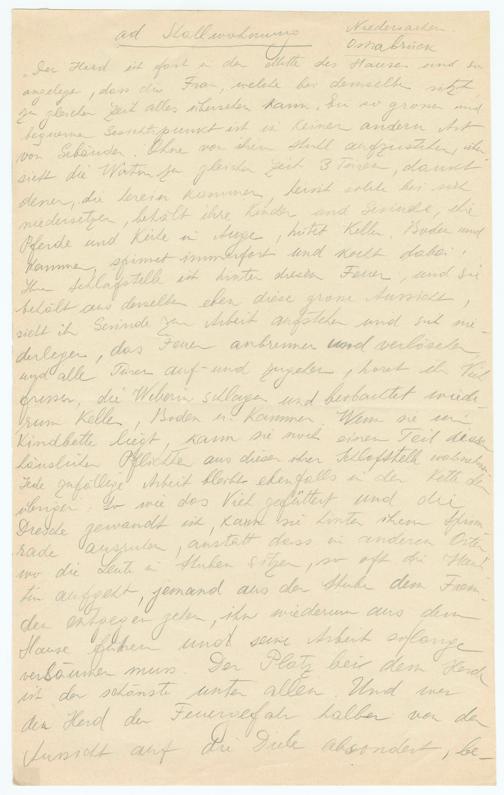 ad Stallwohnung Niedersachsen
Osnabrück
"Der Herd ist fast in der Mitte des Hauses und so
angelegt, dass die Frau, welche bei demselben sitzt
zu gleicher Zeit alles übersehen kann. Ein so grosser und
bequemer Gesichtspunkt ist in keiner andern Art
von Gebäuden. Ohne von ihrem Stuhl aufzustehen, über-
sieht die Wirtin zu gleicher Zeit 3 Türen, dankt
denen, die herein kommen, heisst solche bei sich
niedersetzen, behält ihre Kinder und Gesinde, ihre
Pferde und Kühe im Auge, hütet Keller, Boden und
Kammer, spinnet immerfort und kocht dabei.
Ihre Schlafstelle ist hinter diesem Feuer, und sie
behält aus derselben eben diese grosse Aussicht,
sieht ihr Gesinde zur Arbeit aufstehen und sich nie-
derlegen, das Feuer anbrennen und verlöschen
und alle Türen auf- und zugehen, höret ihr Vieh
fressen, die Weberin schlagen und beobachtet wiede-
rum Keller, Boden u. Kammer. Wenn sie im
Kindbette liegt, kann sie noch einen Teil dieser
häuslichen Pflichten aus dieser ihrer Schlafstelle wahrnehmen
Jede zufällige Arbeit bleibt ebenfalls in der Kette der
übrigen. So wie das Vieh gefüttert und die
Dresche gewandt ist, kann sie hinter ihrem Spinn
rade ausruhen, anstatt dass in anderen Orten
wo die Leute in Stuben sitzen, so oft die Haus-
tür aufgeht, jemand aus der Stube dem Frem-
den entgegen gehen, ihn wiederum aus dem
Hause führen und seine Arbeit solange
versäumen muss. Der Platz bei dem Herde
ist der schönste unter allen. Und wer
den Herd der Feuergefahr halber von der
Aussicht auf die Diele absondert, be-